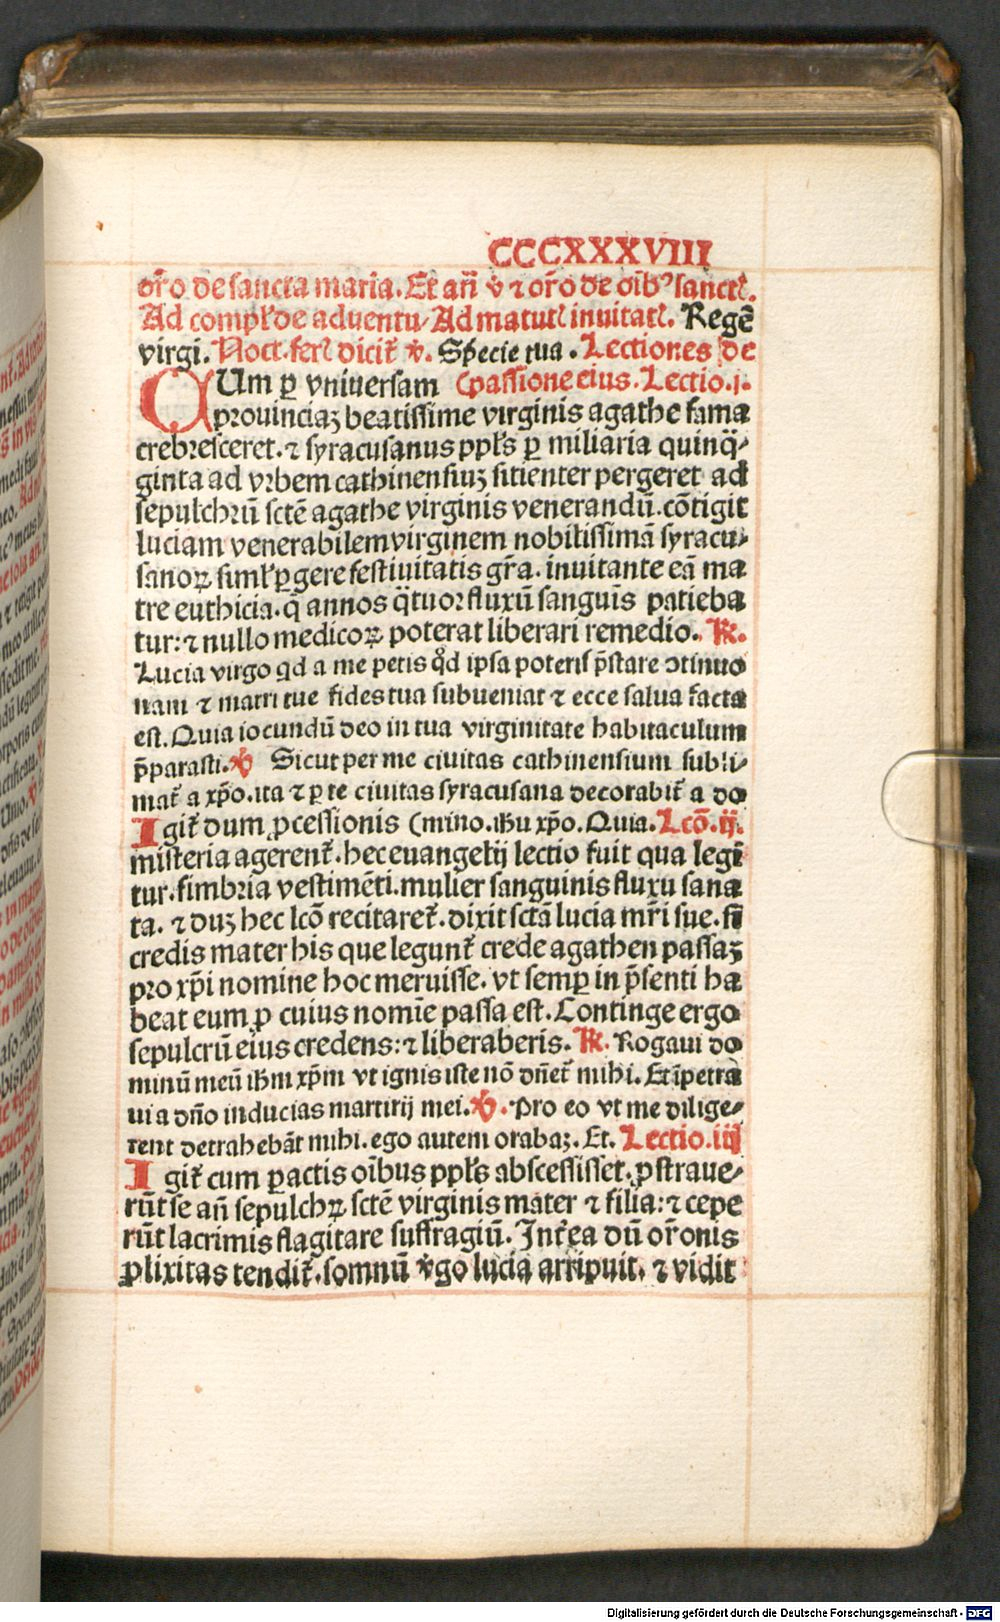 CCCXXXVIII
or̃o de sancta maria. Et añ v̄ ⁊ or̃o de oīb⁹ sanctꝭ.
Ad complꝭ de aduentu. Ad matutꝭ inuitatꝭ. Regē
virgi. Noct. ferꝭ dicit̃ v̄. Specie tua. Lectiones de
CUm ꝑ vniuersam (passione eius. Lectio. j.
prouinciaꝫ beatissime virginis agathe fama
crebresceret. ⁊ syracusanus pplꝭs ꝑ miliaria quinq̄-
ginta ad vrbem cathinensiuꝫ sitienter pergeret ad
sepulchꝝ̄ sctē agathe virginis venerandū. cōtigit
luciam venerabilem virginem nobilissimā syracu-
sanoꝝ simlꝭ ꝑgere festiuitatis gr̃a. inuitante eā ma
tre euthicia. q̄ annos q̄tuor fluxū sanguis patieba
tur: ⁊ nullo medicoꝝ poterat liberari remedio. ℟.
Lucia virgo qd a me petis qd̊ ipsa poteris p̄stare ꝯtinuo
nam ⁊ matri tue fides tua subueniat ⁊ ecce salua facta
est. Quia iocundū deo in tua virginitate habitaculum
p̄parasti. ℣ Sicut per me ciuitas cathinensium subli-
mat̃ a xp̄o. ita ⁊ ꝑ te ciuitas syracusana decorabit̃ a do
Igit̃ dum ꝓcessionis (mino. ihu xp̄o. Quia. Lcō. ij.
misteria agerent̃. hec euangelij lectio fuit qua legī
tur. fimbria vestimēti. mulier sanguinis fluxu sana
ta. ⁊ duꝫ hec lcō recitaret̃. dixit sctā lucia mr̃i sue. si
credis mater his que legunt̃ crede agathen passaꝫ
pro xp̄i nomine hoc meruisse. vt semꝑ in p̄senti ha
beat eum ꝓ cuius nomīe passa est. Continge ergo
sepulcrū eius credens: ⁊ liberaberis. ℟. Rogaui do
minū meū ihm xp̄m vt ignis iste nō dn̄et̃ mihi. Et īpetra
ui a dn̄o inducias martirij mei. ℣. Pro eo vt me dilige-
rent detrahebāt mihi. ego autem orabaꝫ. Et. Lectio. iij
Igit̃ cum ꝑactis oībus pplꝭs abscessisset. ꝓstraue-
rūt se añ sepulchꝝ sctē virginis mater ⁊ filia: ⁊ cepe
rūt lacrimis flagitare suffragiū. Int̃ea dū or̃onis
ꝓlixitas tendit̃. somnū v̄go lucia arripuit. ⁊ vidit
Digitalisierung gefördert durch die Deutsche Forschungsgemeinschaft - DFG